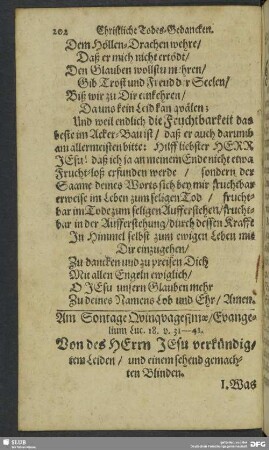 202 Christliche Todes-Gedancken.
Dem Höllen-Drachen wehre/
Daß er mich nicht ertödt/
Den Glauben wollstu mehren/
Gib Trost und Freud der Seelen/
Biß wir zu Dir einkehren/
Da uns kein Leid kan qvälen:
Und weil endlich die Feuchtbarkeit das
beste im Acker-Bau ist/ daß er auch darumb
am allermeisten bitte: Hilff liebster HERR
JESu! daß ich ja an meinem Ende nicht etwa
Frucht-loß erfunden werde / sondern der
Saame deines Worts sich bey mir fruchtbar
erweise im Leben zum seligen Tod / frucht-
bar im Tode zum seligen Aufferstehen/ frucht-
bar in der Aufferstehung/ durch dessen Krafft
In Himmel selbst zum ewigen Leben mit
Dir einzugehen/
Zu dancken und zu preisen Dich
Mit allen Engeln ewiglich/
O JEsu unsern Glauben mehr
Zu deines Namens Lob und Ehr/ Amen.
Am Sontage Qvinqvagesimæ/ Evange-
lium Luc. 18. v. 31–42.
Von des HErrn JEsu verkündig-
tem Leiden / und einem sehend gemach-
ten Blinden.
1. Was
SLUB